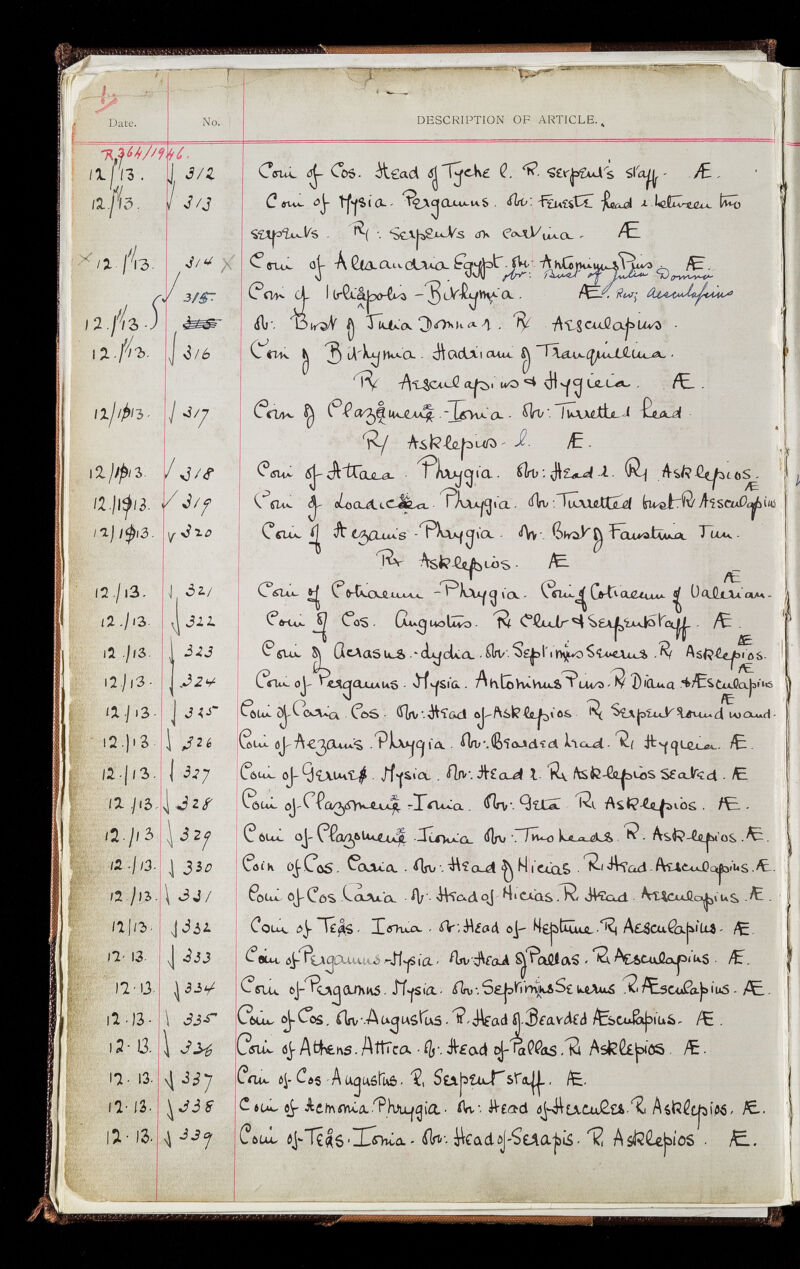 Date. No. DESCRIPTION OF ARTICLE.
R364/1946.
12/13. 312 Coin of Cos. Head of Tyche l. R. serpent's staff. Æ.
12/13. 313 Coin of Mysia. Pergamus. Obv: Head l. between two
serpents. R/: Serpents on Æ
× 12/13. 314 × Coin of Alexandria Egypt. Obv: Antoninus Pius. Æ.
obv: Bust of Julia Domna
315. Coin of Iuliopolis - Bithynia. Æ. Rev; Aesculapius
12/13. 315 Ov: Bust of Julia Domna r. R Aesculapius.
12./13. 316 Coin of Bithynia. Hadriani of Tranquillina.
R Aesculapius & Hygieia. Æ.
12/1913. 317 Coin of Clazomenæ - Ionia. Obv: Turretted head
R/ Asklepios - l. Æ.
12/1913. 318 Coin of Attaea. Phrygia. Obv: Head l. R/ Asklepios. Æ
12/1913. 319 Coin of Loadicæa. Phrygia. Obv: Turretted bust. R/ Aesculapius
12/1913. 320 Coin of Aezanis - Phrygia. Obv: Bust of Faustina Jun.
Rx Asklepios. Æ
12/13. 321 Coin of Cotiaeum - Phrygia. Coin of Cotiaeum of Valerian. Æ
12/13. 322 Coin of Cos. Augustus. R Club & Serpent Staff. Æ.
12/13. 323 Coin of Acrasus - Lydia. Obv: Septimius Severus. R/ Asklepios. Æ
12/13. 324 Coin of Pergamus. Mysia. Antoninus Pius. R/ Diana & Æsculapius Æ
12/13. 325 Coin of Caria. Cos. Obv: Head of Asklepios. R Serpent round wand. Æ
12./13. 326 Coin of Aezanis. Phrygia. Obv: Bearded head. R/ Hygieia. Æ.
12./13. 327 Coin of Germe. Mysia. Obv: Head l. R Asklepios Seated. Æ
12/13. 328 Coin of Clazomenæ - Ionia. Obv: Geta R Asklepios. Æ.
12./13 329 Coin of Clazomenæ. Ionia Obv: Two heads. R. Asklepios. Æ.
12./13. 330 Coin of Cos. Caria. Obv: Head of Nicias. R: Head Aesculapius. Æ.
12/13. 331 Coin of Cos Caria. Ov: Head of Nicias. R. Head. Aesculapius. Æ.
12/13. 332 Coin of Teos. Ionia. Ov: Head of Neptune. R/ Aesculapius. Æ.
12. 13. 333 Coin of Pergamus - Mysia. Obv Head of Pallas. R Aesculapius. Æ.
12.13. 334 Coin of Pergamus. Mysia. Obv: Septimius Severus. R. Æsculapius. Æ.
12.13. 335 Coin of Cos, Obv. Augustus. R. Head of Bearded Æsculapius. Æ.
12. 13. 336 Coin of Athens. Attica. Ov: Head of Pallas. R Asklepios. Æ.
12. 13. 337 Coin of Cos Augustus. R, Serpent staff. Æ.
12. 13. 338 Coin of Acmonia. Phrygia. Obv: Head of Hercules. R Asklepios. Æ.
12. 13. 339 Coin of Teos. Ionia. Obv: Head of Serapis. R, Asklepios. Æ.